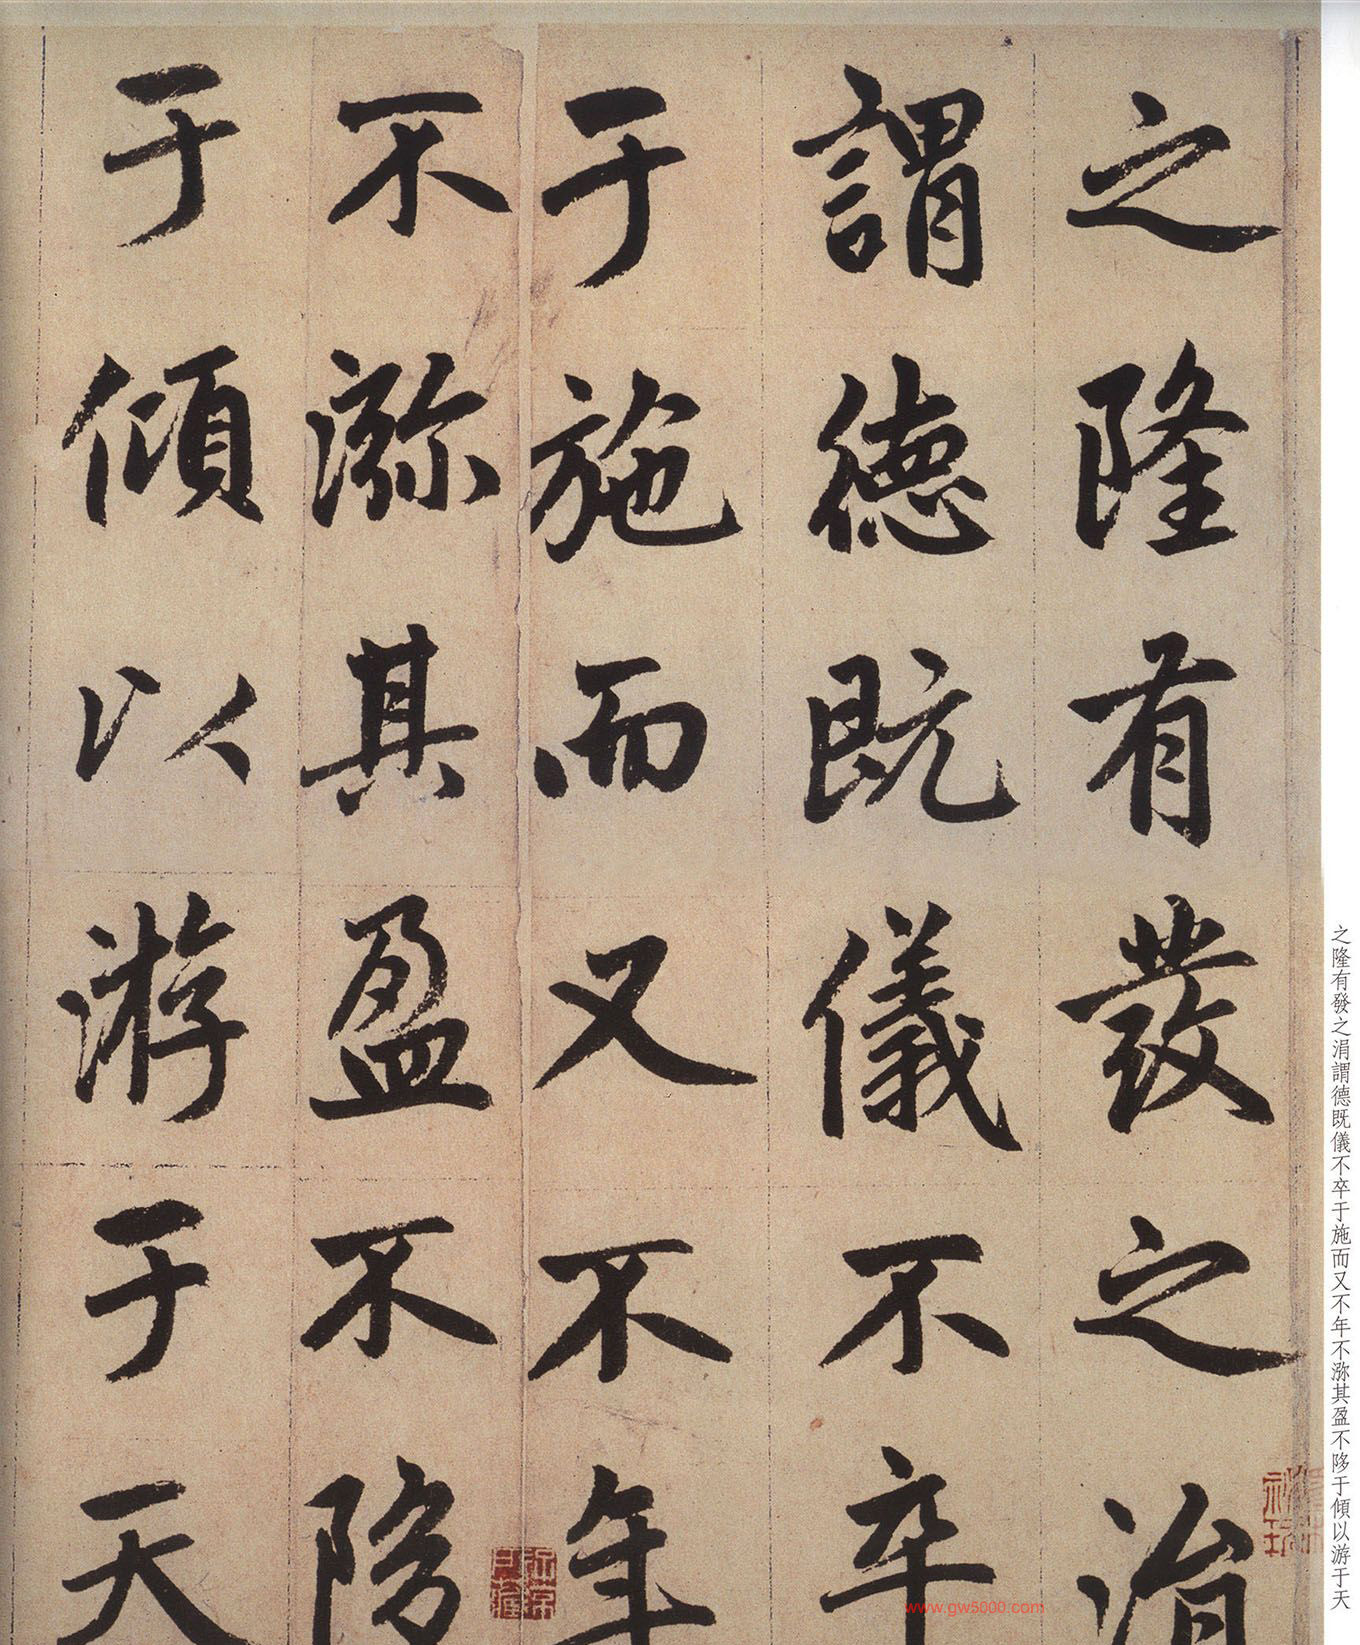 之隆有發之涓
謂德既儀不卒
于施而又不年
不㳽其盈不陊
于傾以游于天
之隆有發之涓謂德既儀不卒于施而又不年不㳽其盈不陊于傾以游于天
www.gw5000.com